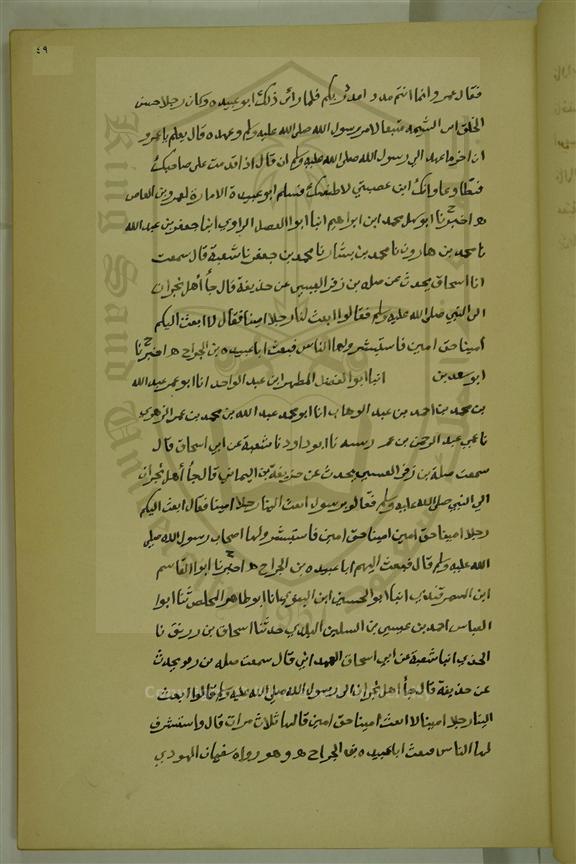 ٤٩
فقال عمرو انما انتم مدد امددت بكم فلما راى ذلك ابو عبيده وكان رجلا حسن
الخلق لين الشيمه متبعا لامر رسول الله صلى الله عليه وسلم وعهده قال يعلم يا عمرو
ان اخر ما عهد الي رسول الله صلى الله عليه وسلم ان قال اذا قدمت على صاحبك
فتطاوعا وانك ابن عصيتني لاطيعنك فسلم ابو عبيدة الامارة لعمرو بن العاص
ه اخبرنا ابو سهل محمد ابن ابراهيم انبا ابوا الفضل الراوي انبا جعفر بن عبد الله
نا محمد بن هارون نا محمد بن بشار نا محمد بن جعفر نا شعبة قال سمعت
انا اسحاق يحدث عن صله بن زفر العبسي عن حذيفة قال جا أهل نجران
الى النبي صلى الله عليه وسلم فقالوا ابعث لنا رجلا امينا فقال لا ابعث اليكم
امينا حق امين فاستبشر ولها الناس فبعث ابا عبيده بن الجراح ه اخبرنا
ابو سعد بن انبا ابوا الفضل المطهر ابن عبد الواحد انا ابو عمر عبد الله
بن محمد بن احمد بن عبد الوهاب انا ابو محمد عبد الله بن محمد بن عمر الزهري
نا عمي عبد الرحمن بن عمر رسته نا ابو داود نا شعبة عن ابي اسحاق قال
سمعت صلة بن زفر العبسي يحدث عن حذيفة بن اليماني قال جا أهل نجران
الى النبي صلى الله عليه وسلم فقالو يرسول ابعث الينا رجلا امينا فقال ابعث اليكم
رجلا امينا حق امين امينا حق امين فاستبشر ولها اصحاب رسول الله صلى
الله عليه وسلم قال فبعث اليهم ابا عبيده بن الجراح ه اخبرنا ابوا القاسم
ابن السمرقندي انبا ابو الحسين ابن البغوي انا ابو طاهر المخلص ثنا ابوا
العباس احمد بن عيسى بن السلين البلدي حدثنا اسحاق بن رزيق نا
الجدي انبا شعبة عن ابي اسحاق الهمداني قال سمعت صله بن زفر يحدث
عن حذيفة قال جا أهل نجران الى رسول الله صلى الله عليه وسلم قالوا ابعث
الينا رجلا امينا لا ابعث امينا حق امين قالها ثلاث مرات قال واستشرف
لها الناس فبعث ابا عبيده بن الجراح ه وهو رواه سفيان
King Saud University